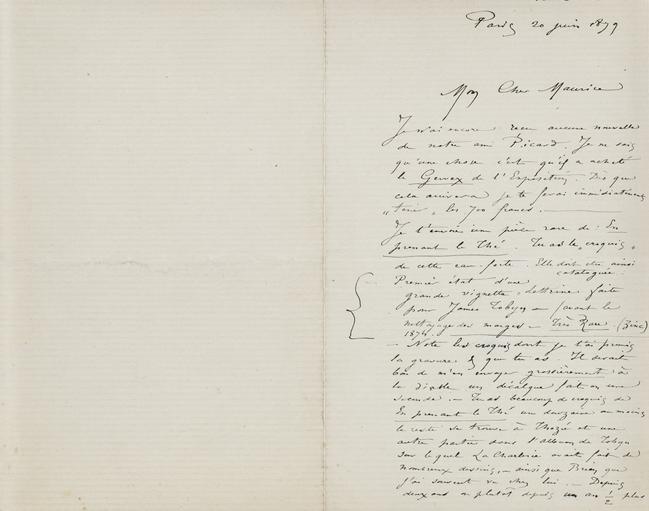 Paris 20 juin 1879
Mon Cher Maurice
Je n'ai encore reçu aucune nouvelle
de notre ami Picard. Je ne sais
qu'une chose c'est qu'il a acheté
le Gervex de l'Exposition. Dès que
cela arrivera je te ferai immédiatement
les 700 francs.
Je t'envoie une pièce rare de: En
prenant le Thé. Tu as le croquis
de cette eau forte. Elle doit être ainsi
cataloguée
Premier état d'une
grande vignette faite
pour James Tobyns (avant le
nettoyage des marges - Très Rare. (Zinc)
1874.
- Note les croquis dont je t'ai promis
la gravure & que tu as. Il serait
bon de m'en envoyer grossièrement à
la diable un décalque fait en une
seconde - Tu as beaucoup de croquis de
En prenant le Thé une douzaine au moins
le reste se trouve à et une
autre partie dans l'album de Tobyns
sur lequel La Charlerie avait fait de
nombreux dessins, - ainsi que que
j'ai souvent vu chez lui. - Depuis
deux ans ou plutôt depuis un an 1/2 plus